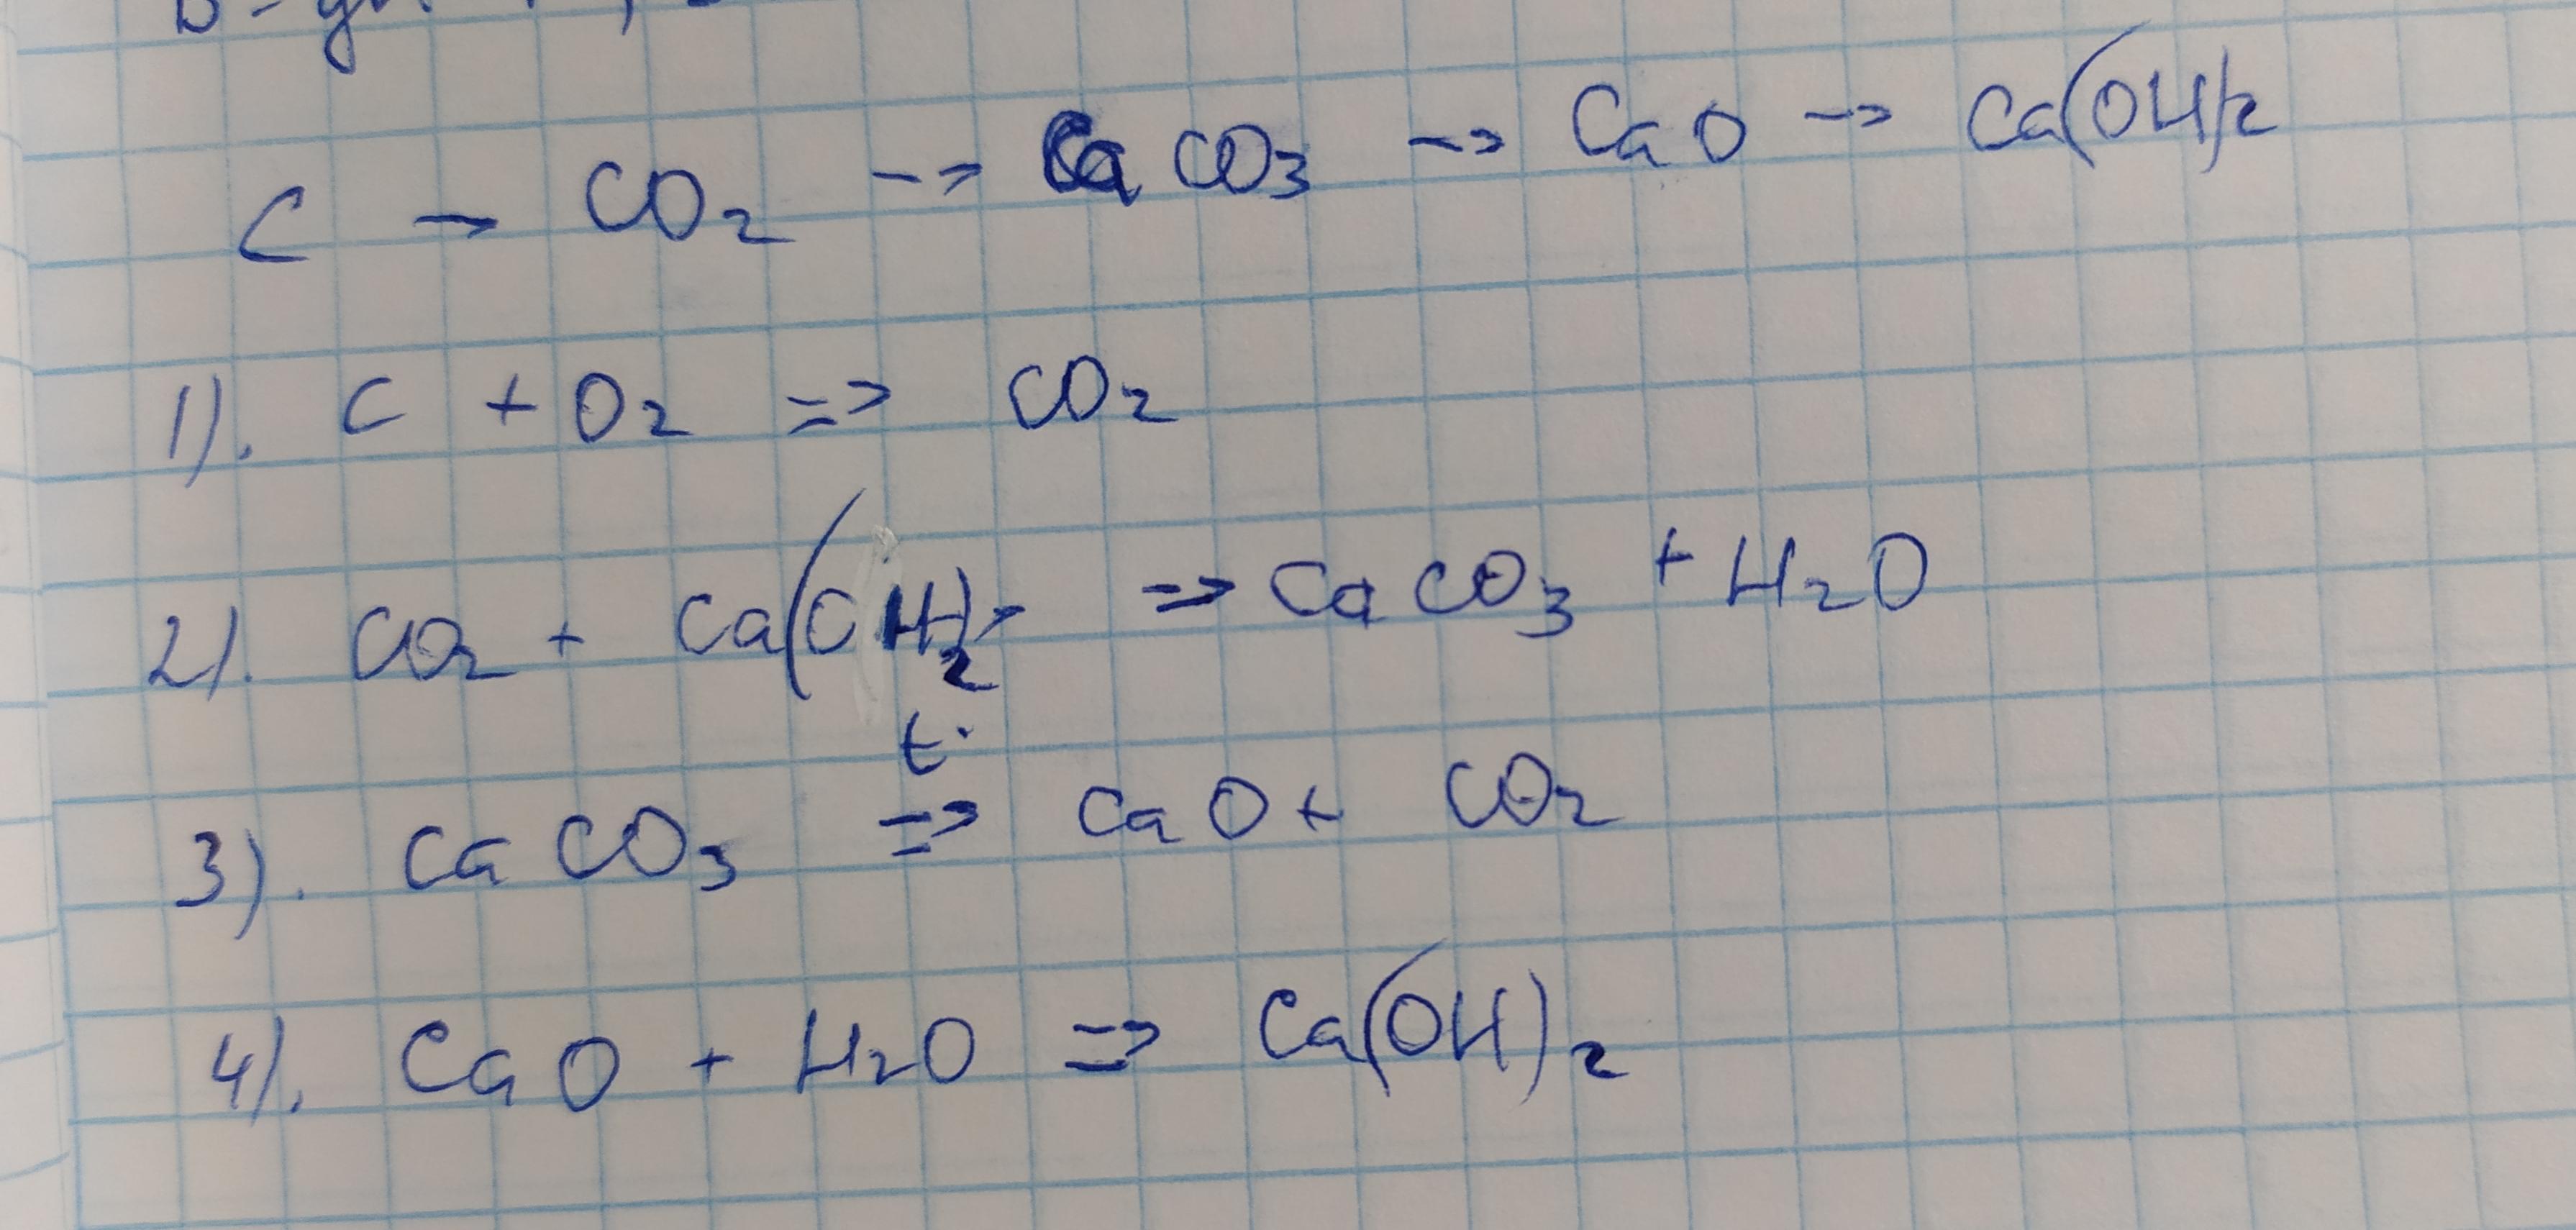 C → CO₂ → CaCO₃ → CaO → Ca(OH)₂
1). C + O₂ => CO₂
2). CO₂ + Ca(OH)₂ => CaCO₃ + H₂O
t°
3). CaCO₃ => CaO + CO₂
4). CaO + H₂O => Ca(OH)₂